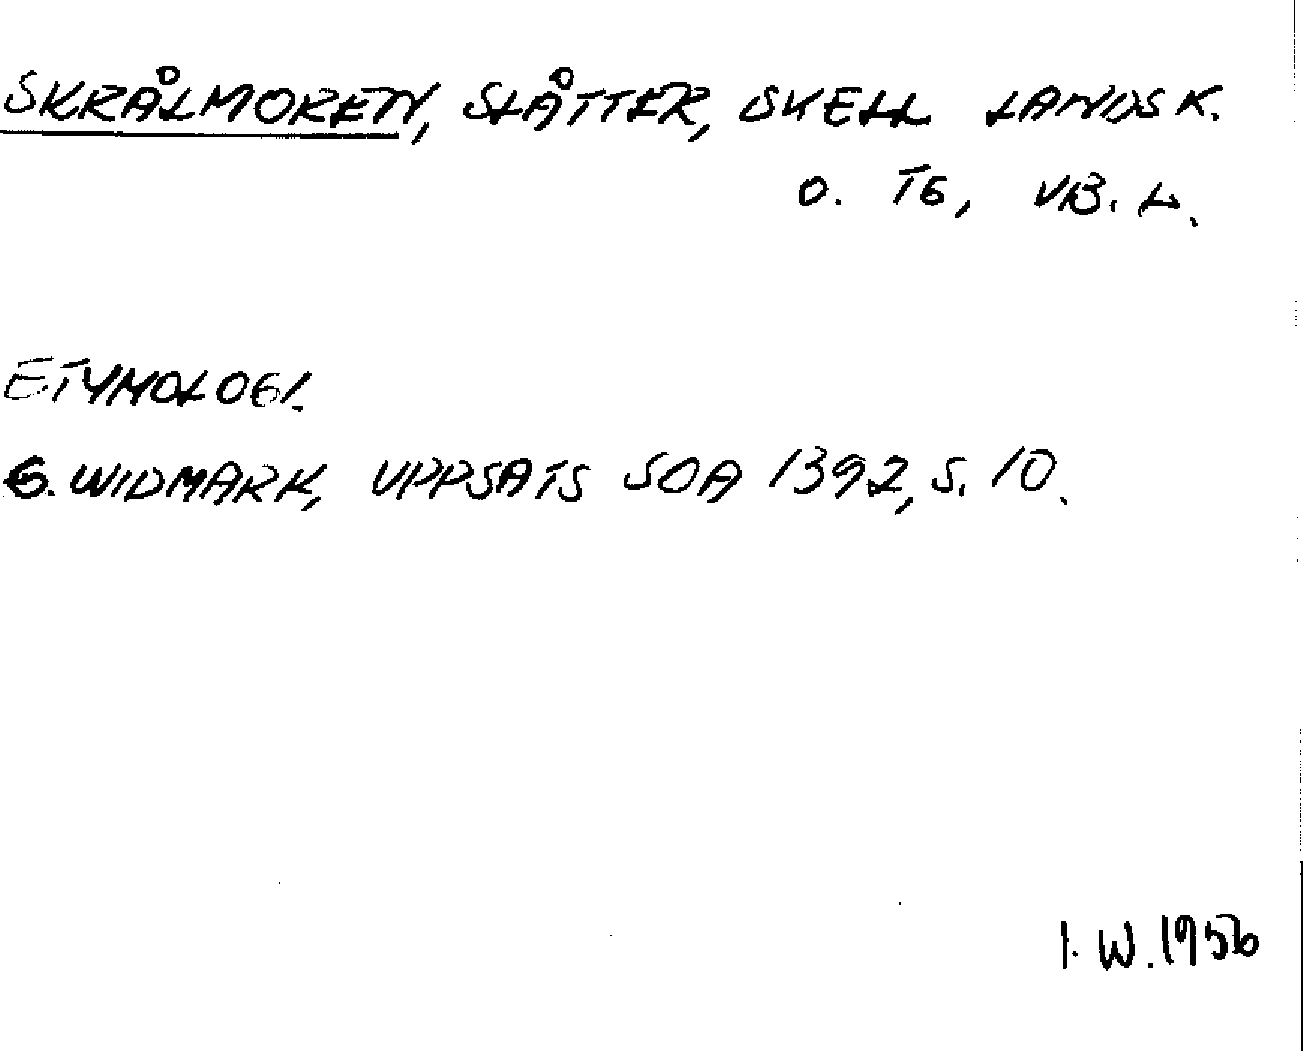 SKRÅLMOREN, SLÅTTER, SKELL LANDSK.
O. TG, VB. L.
ETYMOLOGI.
G. WIDMARK, UPPSATS SOA 1392, S. 10.
I. W. 1956